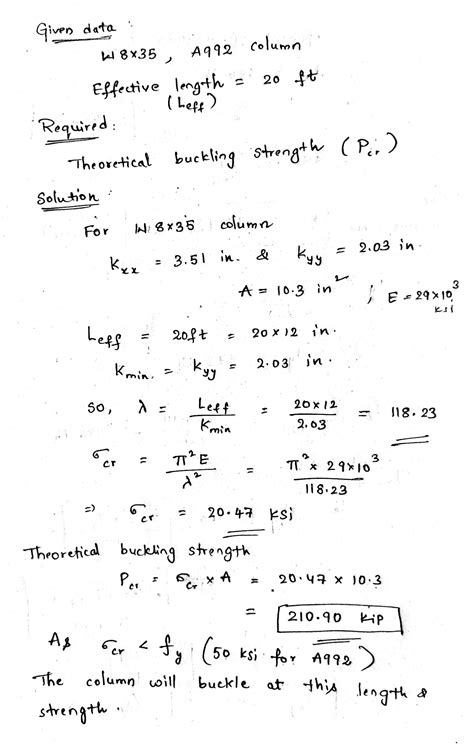 Given data :
W 8x35 , A992 column
Effective length = 20 ft
(Leff)
Required :
Theoretical buckling strength (Pcr)
Solution :
For W 8x35 column
Kxx = 3.51 in. & Kyy = 2.03 in.
A = 10.3 in² ; E = 29x10³ ksi
Leff = 20ft = 20 x 12 in.
Kmin. = Kyy = 2.03 in.
So, λ = Leff / Kmin = 20x12 / 2.03 = 118.23
σcr = π²E / λ² = π² x 29x10³ / 118.23
⇒ σcr = 20.47 ksi
Theoretical buckling strength
Pcr = σcr x A = 20.47 x 10.3
= 210.90 kip
As σcr < fy (50 ksi for A992)
The column will buckle at this length &
strength .